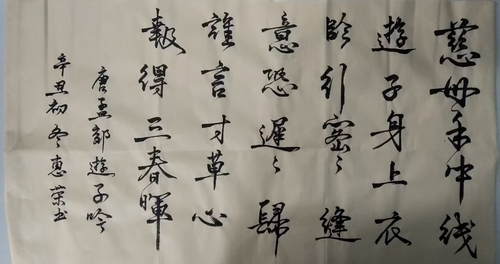 慈母手中綫
遊子身上衣
臨行密々縫
意恐遲々歸
誰言寸草心
報得三春暉
唐孟郊遊子吟
辛丑初冬惠荣书